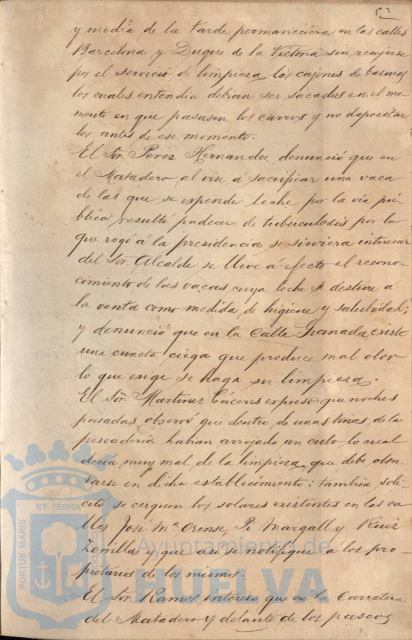 52
y media de la tarde permaneciera en las calles
Barcelona y Duque de la Victoria sin recojerse
por el servicio de limpieza los cajones de basuras
los cuales entendia debian ser sacados en el mo-
mento en que pasasen los carros y no depositar
los antes de ese momento.
El Sr. Perez Hernandez denunció que en
el Matadero al irse á sacrificar una vaca
de las que se expende leche por la via pú-
blica resultó padecer de tuberculosis por lo
que rogó á la presidencia se sirviera interesar
del Sr. Alcalde se lleve á efecto el recono-
cimiento de las vacas cuya leche se destine á
la venta como medida de higiene y salubridad;
y denunció que en la Calle Granada existe
una cuneta ciega que produce mal olor
lo que exige se haga su limpieza.
El Sr. Martinez Cáceres expuso que noches
pasadas observó que dentro de unas tinas de la
pescaderia habian arrojado un cubo lo cual
decia muy mal de la limpieza que debe obser-
varse en dicho establecimiento: tambien soli-
citó se cerquen los solares existentes en las ca-
lles José Mª Orense, Pi Margall y Ruiz
Zorrilla y que asi se notifique á los pro-
pietarios de los mismos.
El Sr. Ramos interesó que en la Carretera
del Matadero y delante de los paseos
PORTUS MARIS
ET TERRA
Ayuntamiento de
HUELVA